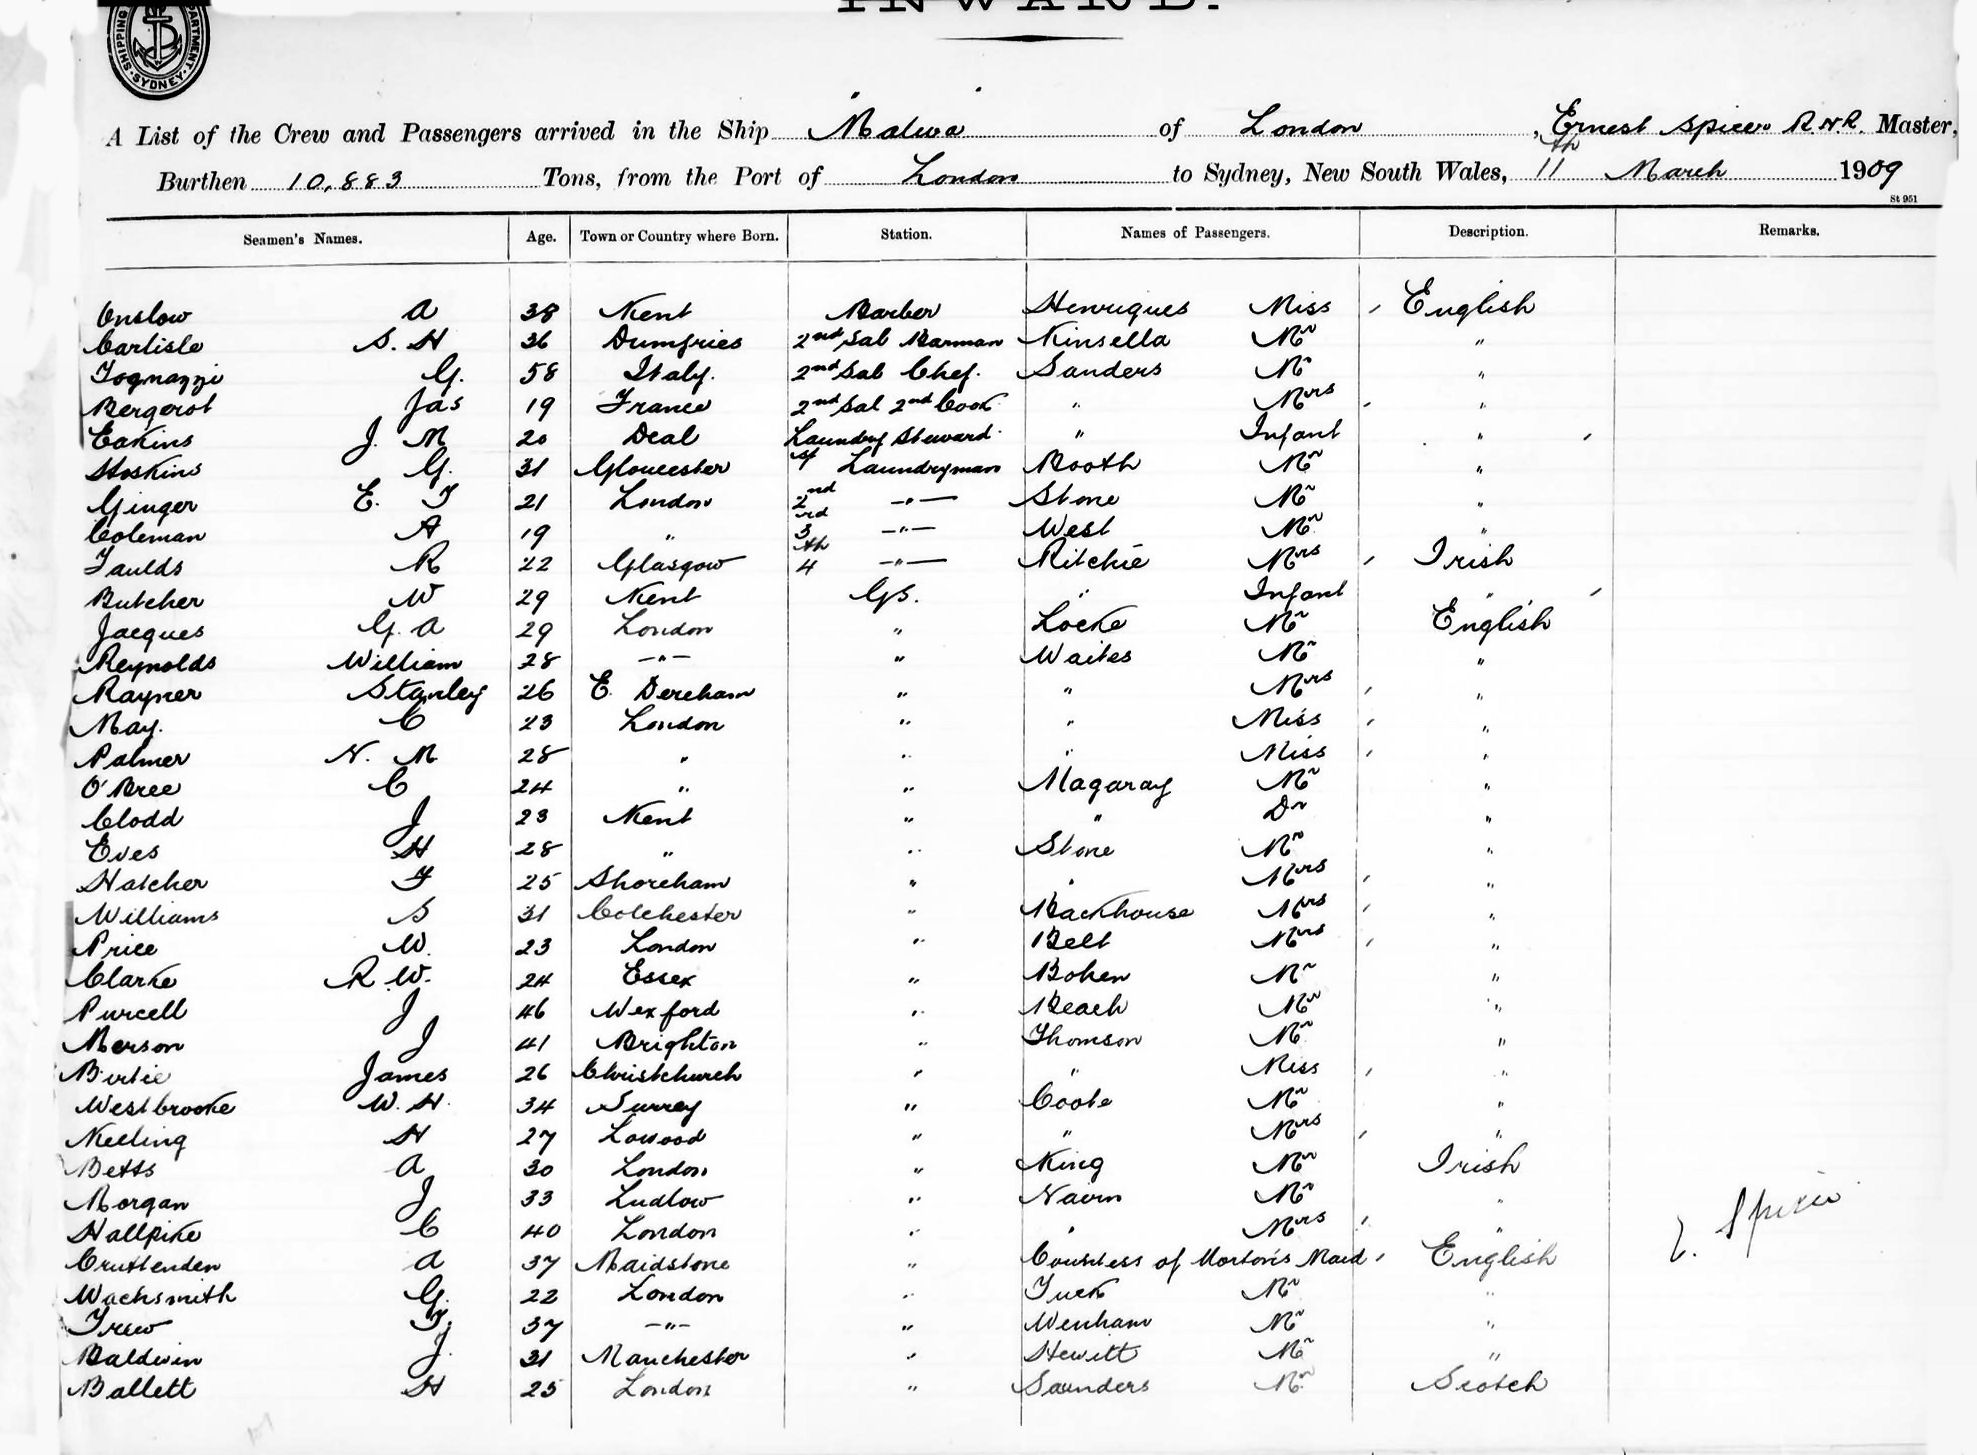 INWARD.
SHIPPING DEPARTMENT SYDNEY
A List of the Crew and Passengers arrived in the Ship Malwa of London, Ernest Spicer R.N.R. Master,
Burthen 10,883 Tons, from the Port of London to Sydney, New South Wales, 11th March 1909
St 951
Seamen's Names. Age. Town or Country where Born. Station. Names of Passengers. Description. Remarks.
Onslow A 38 Kent Barber Henriques Miss English
Carlisle S. H 36 Dumfries 2nd Sal Barman Kinsella Mr "
Tognazzi G. 58 Italy. 2nd Sal Chef. Sanders Mr "
Bergerot Jas 19 France 2nd Sal 2nd Cook " Mrs "
Eakins J. M 20 Deal Laundry Steward " Infant "
Hoskins G. 31 Gloucester Laundryman Booth Mr "
Ginger E. T 21 London 2nd -"- Stone Mr "
Coleman A 19 " 3rd -"- West Mr "
Faulds R 22 Glasgow 4th -"- Ritchie Mrs Irish
Butcher W 29 Kent GS. " Infant "
Jacques G. A 29 London " Locke Mr English
Reynolds William 28 -"- " Waites Mr "
Rayner Stanley 26 E. Dereham " " Mrs "
May. C 23 London " " Miss "
Palmer N. M 28 " " " Miss "
O'Bree C 24 " " Magaray Mr "
Clodd J 23 Kent " " Dr "
Eves H 28 " " Stone Mr "
Hatcher F 25 Shoreham " " Mrs "
Williams S 31 Colchester " Backhouse Mrs "
Price W. 23 London " Belt Mrs "
Clarke R. W. 24 Essex " Bohen Mr "
Purcell J 46 Wexford " Beach Mr "
Merson J 41 Brighton " Thomson Mr "
Birtie James 26 Christchurch " " Miss "
Westbrooke W. H. 34 Surrey " Coote Mr "
Keeling H 27 Lowood " " Mrs "
Betts A 30 London " King Mr Irish
Morgan J 33 Ludlow " Nairn Mr "
Hallpike C 40 London " " Mrs "
Cruttenden A 37 Maidstone " Countess of Morton's Maid English
Wachsmith G. 22 London " Tuck Mr "
Trew T. 37 -"- " Wenham Mr "
Baldwin J. 31 Manchester " Hewitt Mr "
Ballett H 25 London " Saunders Mr Scotch
E. Spicer